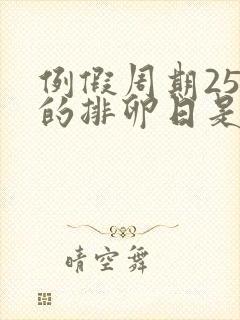 例假周期25
的排卵日是
晴空舞